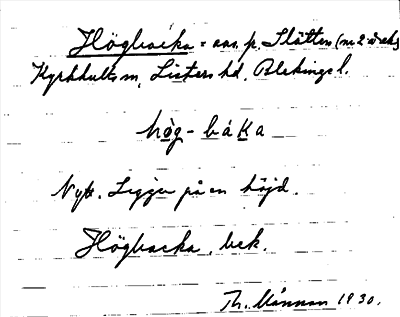 Högbacka = an. p. Slätten (nr 2
Kyrkhults sn, Listers hd, Blekinge l.
hög - båka
Nytt. Ligger på en höjd.
Högbacka, bek.
Th. Månsson 1930.